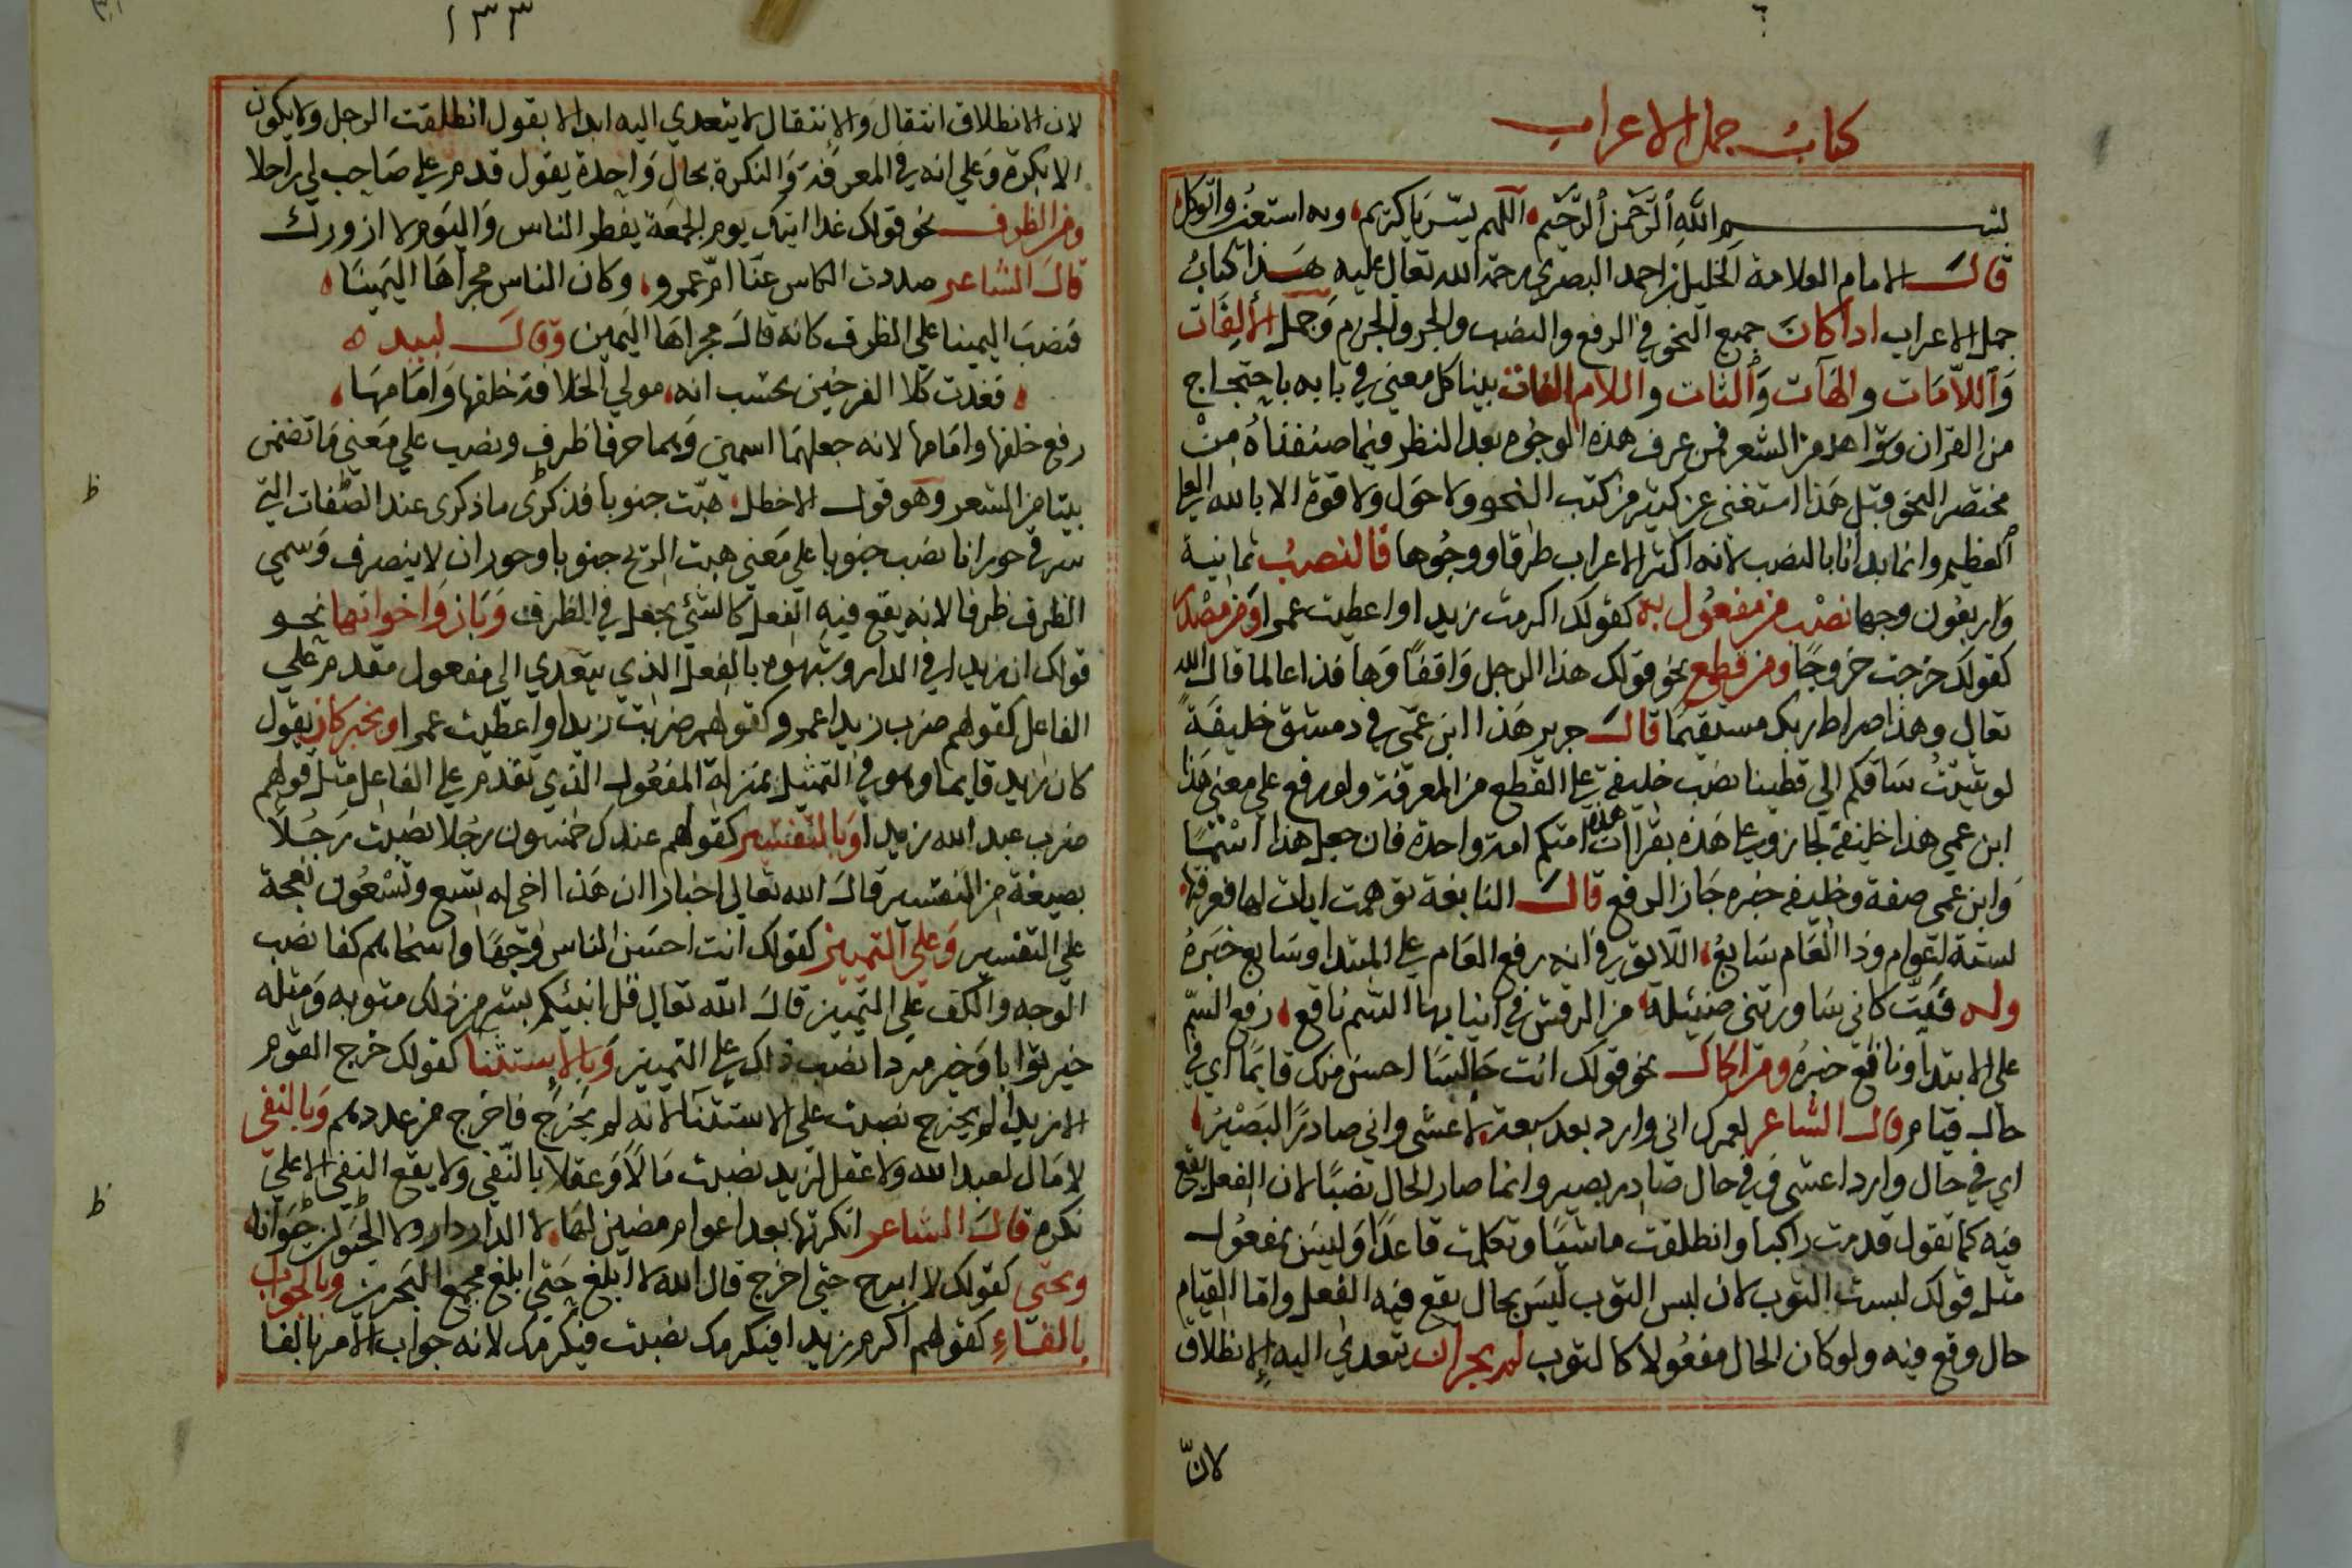 كتاب جمل الاعراب
بسم الله الرحمن الرحيم اللهم يسر يا كريم وبه استعنت واتوكل
قال الامام العلامة الخليل بن احمد البصري رحمة الله تعالى عليه هذا كتاب
جمل الاعراب اذا كان جميع النحو في الرفع والنصب والجر والجزم وجمل الألفات
واللامات والهآت والتات واللام الفات بينا كل معنى في بابه باحتجاج
من القران وشواهد من الشعر فمن عرف هذه الوجوه بعد النظر فيما صنفناه من
مختصر النحو قبل هذا استغنى عن كثير من كتب النحو ولا حول ولا قوة الا بالله العلي
العظيم وانما بدانا بالنصب لانه اكثر الاعراب طرقا ووجوها فالنصب ثمانية
واربعون وجها نصب من مفعول به كقولك اكرمت زيدا واعطيت عمرا ومن مصدر
كقولك خرجت خروجا ومن قطع نحو قولك هذا الرجل واقفا وها فذا عالما قال الله
تعالى وهذا صراط ربك مستقيما قال جرير هذا ابن عمي في دمشق خليفة
لو شئت ساقكم الي قطينا نصب خليفة على القطع من المعرفة ولو رفع على معنى هذا
ابن عمي هذا خليفة لجاز وعلى هذه يقرا ان هذه امتكم امة واحدة فان جعل هذا اسما
وابن عمي صفة وخليفة خبره جاز الرفع قال النابغة توهمت ايات لها فعرفتها
لستة اعوام وذا العام سابع اللا ترى انه رفع العام على المبتدا وسابع خبره
وله فبت كاني ساورتني ضئيلة من الرقش في انيابها السم ناقع رفع السم
على الابتدا وناقع خبره ومن الحال نحو قولك انت جالسا احسن منك قايما اي في
حال قيام قال الشاعر لعمرك اني وارد بعد سبعة لاعشى واني صادرا لبصير
اي في حال وارد اعشى وفي حال صادر بصير وانما صار الحال نصبا لان الفعل يقع
فيه كما تقول قدمت راكبا وانطلقت ماشيا وتكلمت قاعدا وليس بمفعول
مثل قولك لبست الثوب لان لبس الثوب ليس بحال يقع فيه الفعل واما القيام
حال وقع فيه ولو كان الحال مفعولا كالثوب لم يجز ان يتعدي اليه الانطلاق
لان
١٣٣
لان الانطلاق انتقال والإنتقال لا يتعدي اليه ابدا لا يقول انطلقت الرجل ولا يكون
الا نكرة وعلى انه في المعرفة والنكرة بحال واحدة يقول قدم علي صاحب لي راجلا
ومن الظرف نحو قولك غدا اتيك يوم الجمعة يفطر الناس واليوم لا ازورك
قال الشاعر صددت الكاس عنا ام عمرو وكان الناس مجراها اليمينا
فنصب اليمينا على الظرف كانه قال مجراها اليمين وقال لبيد ه
فغدت كلا الفرجين تحسب انه مولي الخلافة خلفها وامامها
رفع خلفها وامامها لانه جعلهما اسمين وهما حرفا ظرف ونصب على معنى ما تضمن
بيتا من الشعر وهو قول الاخطل هبت جنوبا فذكرى ما ذكرى عند الصفات التي
شرقي حورانا نصب جنوبا على معنى هبت الريح جنوبا وحوران لا ينصرف وسمي
الظرف ظرفا لانه يقع فيه الفعل كالشئ يجعل في الظرف وبان واخواتها نحو
قولك ان زيدا في الدار وشبهوه بالفعل الذي يتعدي الى مفعول مقدم على
الفاعل كقولهم ضرب زيدا عمرو وكقولهم ضربت زيدا واعطيت عمرا وبخبر كان يقول
كان زيد قايما وهو في التمثيل بمنزلة المفعول الذي تقدم على الفاعل مثل قولهم
ضرب عبد الله زيدا وبالتفسير كقولهم عندك خمسون رجلا نصبت رجلا
بصيغة من التفسير قال الله تعالى اخبارا ان هذا اخي له تسع وتسعون نعجة
على التفسير وعلى التمييز كقولك انت احسن الناس وجها واسخاهم كفا نصب
الوجه والكف على التمييز قال الله تعالى قل انبئكم بشر من ذلك مثوبة ومثله
خير ثوابا وخير مردا نصب ذلك على التمييز وبالإستثنا كقولك خرج القوم
الا زيدا لم يخرج نصبت على الاستثنآ لانه لم يخرج فاخرج من عددهم وبالنفى
لا مال لعبد الله ولا عقل لزيد نصبت مالا وعقلا بالنفى ولا يقع النفي الا على
نكرة قال الشاعر انكرتها بعد اعوام مضين لها لا الدار دار ولا الجيران جيرانا
وبحتى كقولك لا ابرح حتى اخرج قال الله لا ابلغ حتى ابلغ مجمع البحرين وبالجواب
بالفاء كقولهم اكرم زيدا فيكرمك نصبت فيكرمك لانه جواب الامر بالفا
ظ
ظ